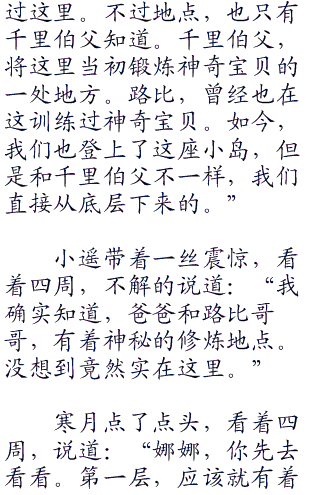 过这里。不过地点，也只有
千里伯父知道。千里伯父，
将这里当初锻炼神奇宝贝的
一处地方。路比，曾经也在
这训练过神奇宝贝。如今，
我们也登上了这座小岛，但
是和千里伯父不一样，我们
直接从底层下来的。”
小遥带着一丝震惊，看
着四周，不解的说道：“我
确实知道，爸爸和路比哥
哥，有着神秘的修炼地点。
没想到竟然实在这里。”
寒月点了点头，看着四
周，说道：“娜娜，你先去
看看。第一层，应该就有着